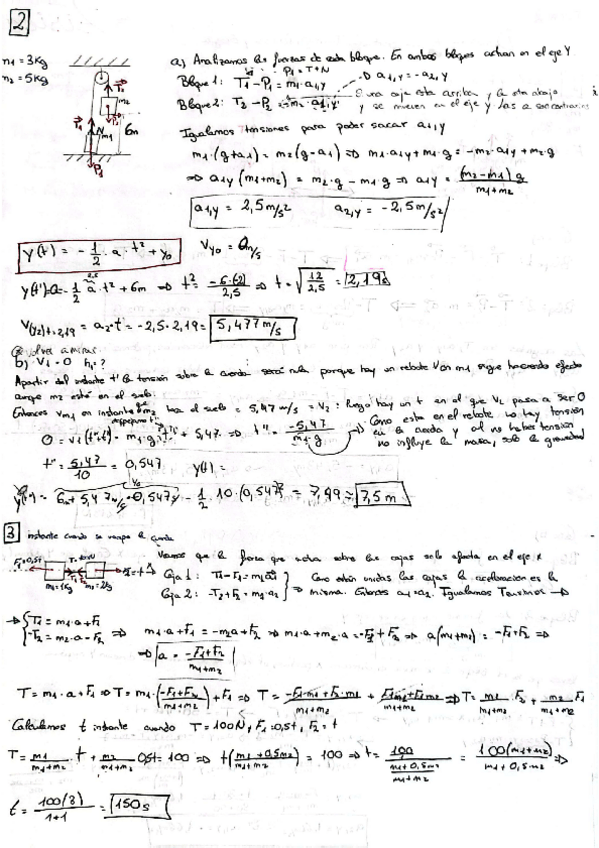 2
m1 = 3Kg
m2 = 5Kg
T1 T2 m2 P2 6m N m1 P1
a) Analizamos las fuerzas de cada bloque. En ambos bloques actuan en el eje Y
P1 = T+N
Bloque 1: T1 - P1 = m1·a1,y → a1,y = -a2,y
Bloque 2: T2 - P2 = -m2·a1,y Si una caja esta arriba y la otra abajo
y se mueven en el eje y las a son contrarias
Igualamos tensiones para poder sacar a1,y
m1(g+a1) = m2(g-a1) ⇒ m1·a1y+m1·g = -m2·a1y+m2·g
⇒ a1y(m1+m2) = m2·g - m1·g ⇒ a1y = (m2-m1)g / m1+m2
a1,y = 2,5m/s² a2,y = -2,5m/s²
y(t) = -1/2·a·t² + y0 Vy0 = 0m/s
y(t')=0=-1/2·a·t²+6m ⇒ t² = -6·(2)/2,5 ⇒ t = √12/2,5 = 2,19s
V(y2)t=2,19 = a2·t' = -2,5·2,19 = 5,477m/s
@volver a mirar
b) V1=0 h1=?
A partir del instante t' la tensión sobre la cuerda será nula porque hay un rebote V on m1 sigue haciendo efecto
aunque m2 esté en el suelo.
Entonces Vm1 en instante que m2 toca el suelo = 5,47m/s = V2: luego hay un t en el que V2 pasa a ser 0
Como esta en el rebote no hay tensión
0 = V1(t'') = -m1·g·t'' + 5,47 ⇒ t'' = -5,47/m1·g → en la cuerda y al no haber tensión
no influye la masa, solo la gravedad
t'' = 5,47/10 = 0,547 y(t) =
y(t) = 6m+5,47m/s·0,547s - 1/2·10·(0,547)² = 7,49 ≈ 7,5m
3 instante cuando se rompe la cuerda
F1=0,5t m1=1Kg m2=2Kg F2=t X
Vemos que la fuerza que actua sobre las cajas solo afecta en el eje x
Caja 1: T1-F1=m1·a1 ⇒ Como están unidas las cajas la aceleracion es la
Caja 2: -T2+F2=m2·a2 misma. Entonces a1=a2. Igualamos Tensiones →
→ T1 = m1·a+F1
-T2 = m2·a-F2 ⇒ m1·a+F1 = -m2a+F2 ⇒ m1·a+m2·a=-F1+F2 ⇒ a(m1+m2) = -F1+F2 ⇒
⇒ a = -F1+F2 / m1+m2
T = m1·a+F1 ⇒ T = m1·(-F1+F2 / m1+m2)+F1 ⇒ T = -F1·m1+F2·m1 / m1+m2 + F1m1+F1m2 / m1+m2 ⇒ T = m1 / m1+m2 ·F2 + m2 / m1+m2 F1
Calculamos t instante cuando T=100N, F1=0,5t, F2=t
T = m1 / m1+m2 ·t + m2 / m1+m2 0,5t=100 ⇒ t(m1+0,5m2 / m1+m2) = 100 ⇒ t = 100 / m1+0,5m2 = 100(m1+m2) / m1+0,5m2 ⇒
t = 100(3) / 1+1 = 150s